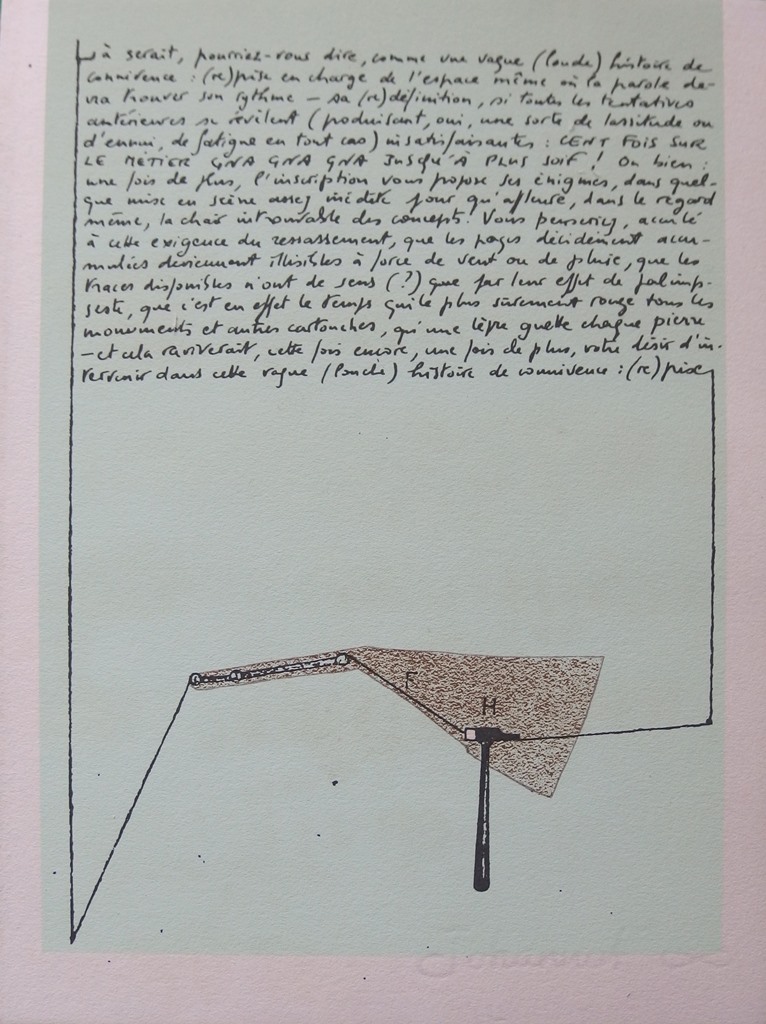 ça serait, pourriez-vous dire, comme une vague (louche) histoire de
connivence : (re)prise en charge de l'espace même où la parole de-
vra trouver son rythme — sa (re)définition, si toutes les tentatives
antérieures se révèlent (produisant, oui, une sorte de lassitude ou
d'ennui, de fatigue en tout cas) insatisfaisantes : CENT FOIS SUR
LE MÉTIER GNA GNA GNA JUSQU'À PLUS SOIF ! Ou bien :
une fois de plus, l'inscription vous propose ses énigmes, dans quel-
que mise en scène assez inédite pour qu'affleure, dans le regard
même, la chair introuvable des concepts. Vous penseriez, acculé
à cette exigence du ressassement, que les pages décidément accu-
mulées deviennent illisibles à force de vent ou de pluie, que les
traces disponibles n'ont de sens (?) que par leur effet de palimp-
seste, que c'est en effet le temps qui le plus sûrement ronge tous les
monuments et autres cartouches, qu'une lèpre guette chaque pierre
— et cela raviverait, cette fois encore, une fois de plus, votre désir d'in-
tervenir dans cette vague (louche) histoire de connivence : (re)prise
F
H